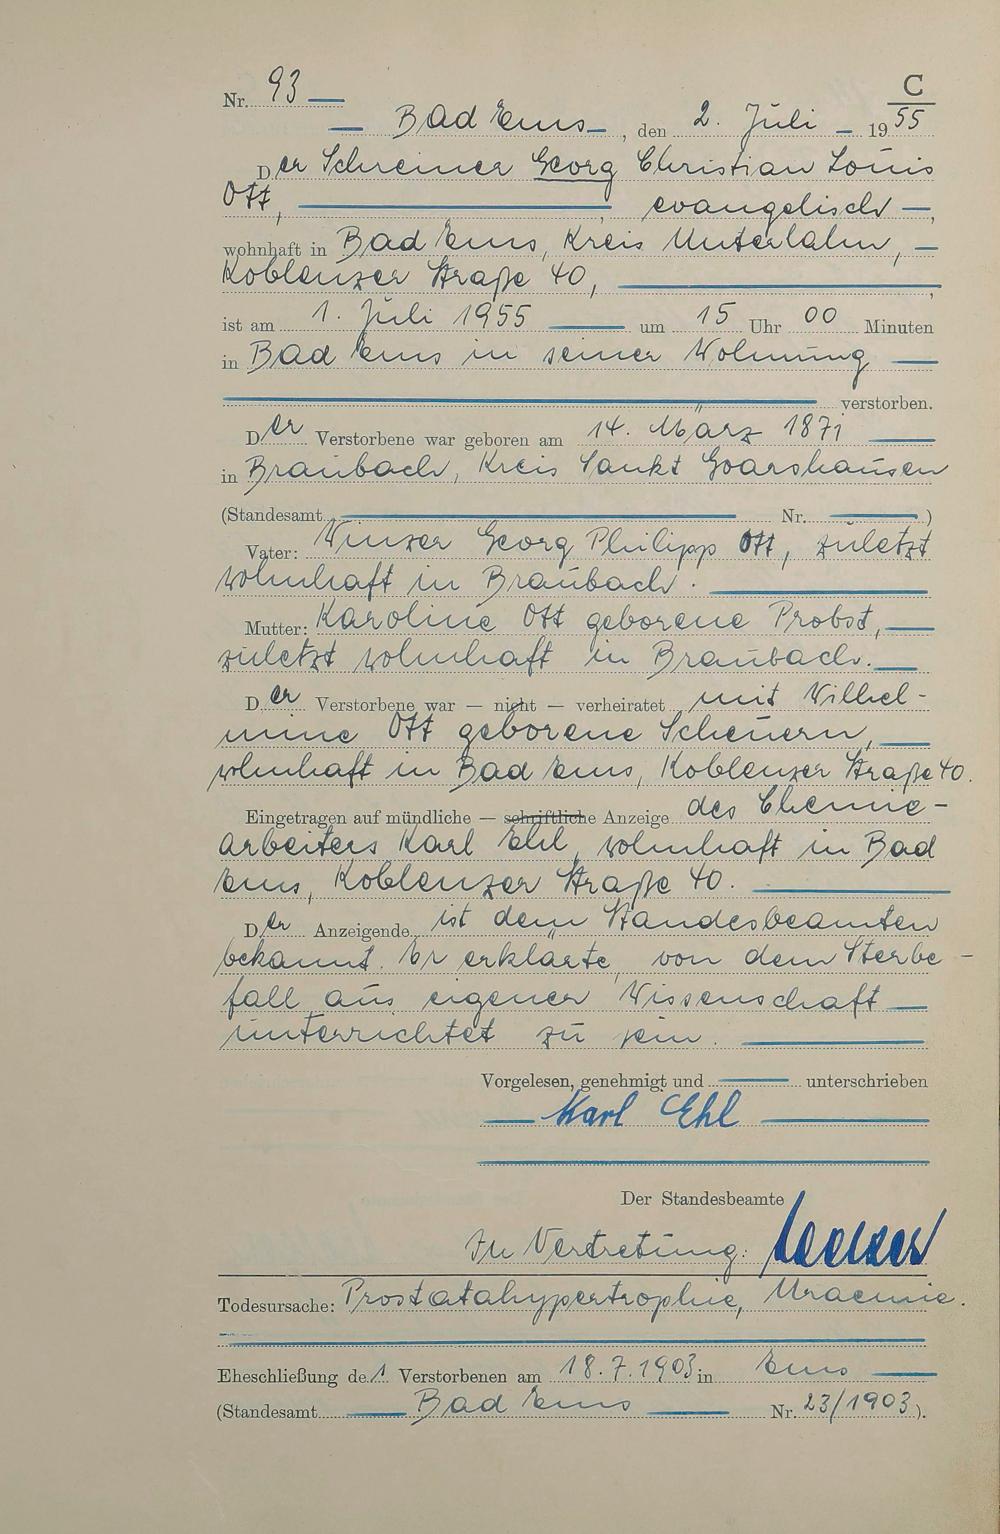 Nr. 93
C
Bad Ems, den 2. Juli 1955
Der Schreiner Georg Christian Louis
Ott, evangelisch,
wohnhaft in Bad Ems, Kreis Unterlahn,
Koblenzer Straße 40,
ist am 1. Juli 1955 um 15 Uhr 00 Minuten
in Bad Ems in seiner Wohnung
verstorben.
Der Verstorbene war geboren am 14. März 1871
in Braubach, Kreis Sankt Goarshausen
(Standesamt Nr. )
Vater: Winzer Georg Philipp Ott, zuletzt
wohnhaft in Braubach.
Mutter: Karoline Ott geborene Probst,
zuletzt wohnhaft in Braubach.
Der Verstorbene war — nicht — verheiratet mit Wilhel-
mine Ott geborene Scheuern,
wohnhaft in Bad Ems, Koblenzer Straße 40.
Eingetragen auf mündliche — schriftliche Anzeige des Chemie-
arbeiters Karl Ehl, wohnhaft in Bad
Ems, Koblenzer Straße 40.
Der Anzeigende ist dem Standesbeamten
bekannt. Er erklärte, von dem Sterbe-
fall aus eigener Wissenschaft
unterrichtet zu sein.
Vorgelesen, genehmigt und unterschrieben
Karl Ehl
Der Standesbeamte
In Vertretung:
Todesursache: Prostatahypertrophie, Uraemie.
Eheschließung des Verstorbenen am 18.7.1903 in Ems
(Standesamt Bad Ems Nr. 23/1903).